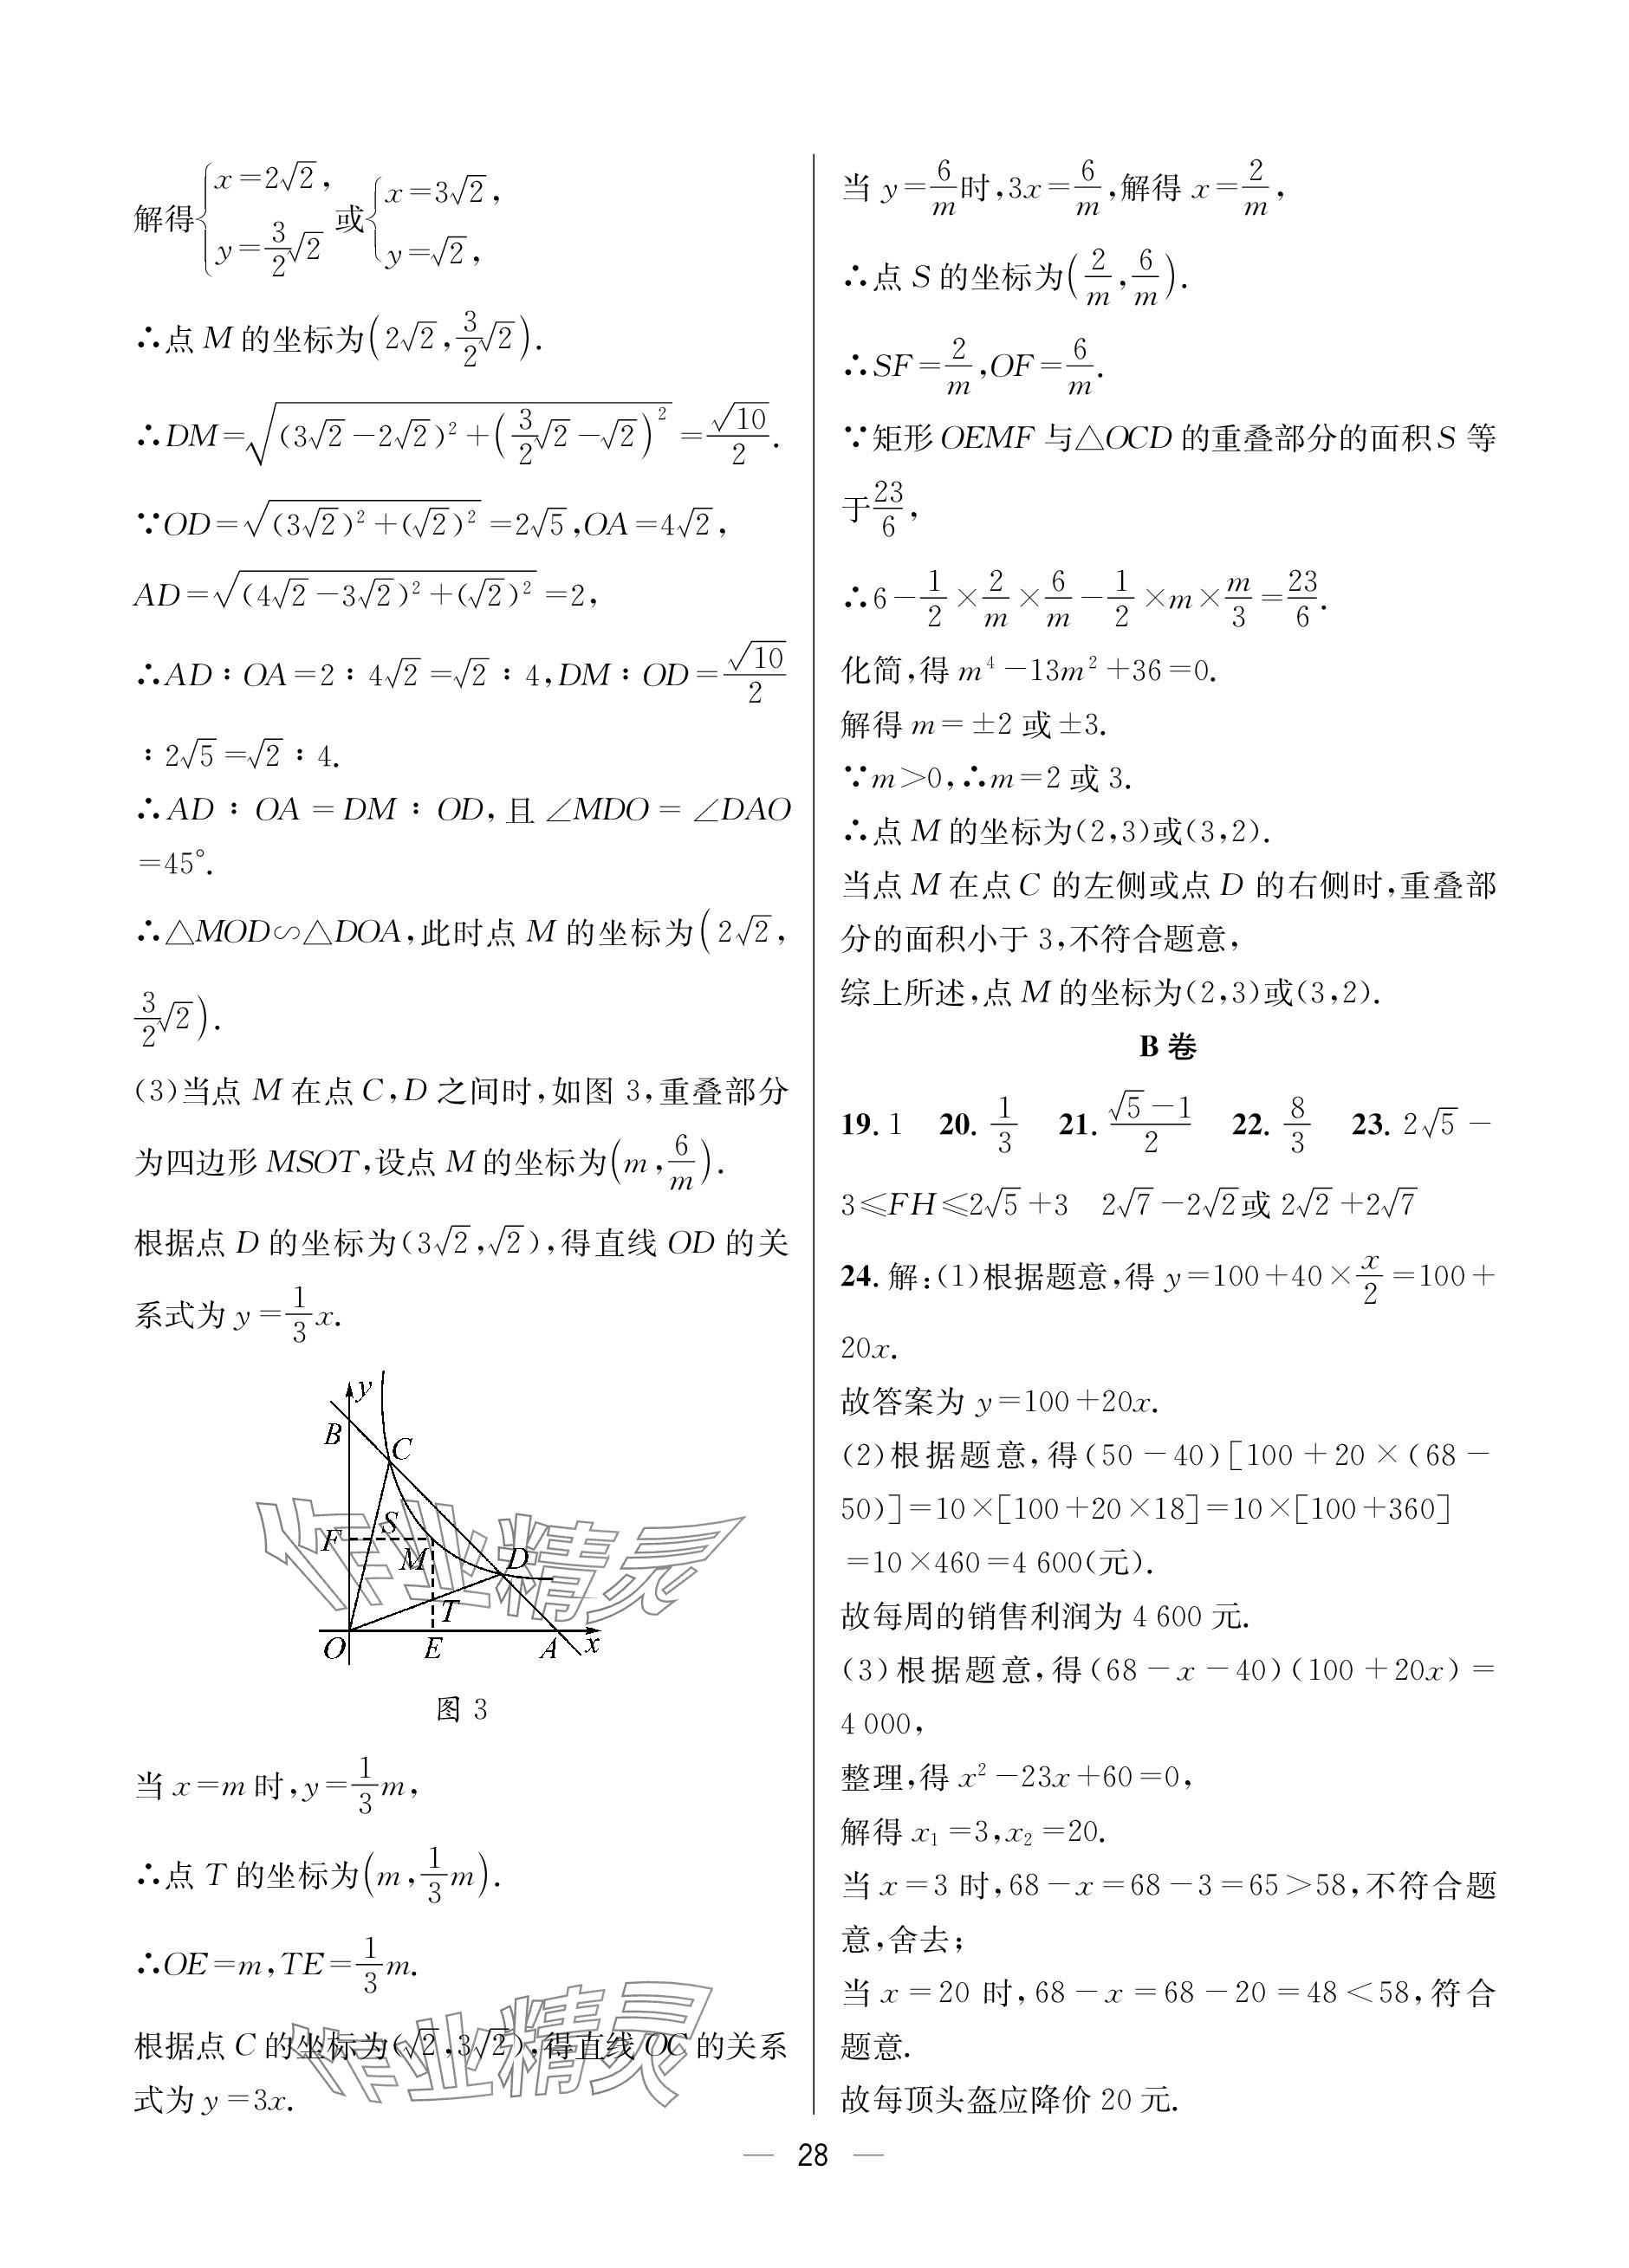 解得{x=2√2, y=3/2√2 或{x=3√2, y=√2,
∴点 M 的坐标为(2√2,3/2√2).
∴DM=√((3√2-2√2)²+(3/2√2-√2)²)=√10/2.
∵OD=√((3√2)²+(√2)²)=2√5,OA=4√2,
AD=√((4√2-3√2)²+(√2)²)=2,
∴AD∶OA=2∶4√2=√2∶4,DM∶OD=√10/2
∶2√5=√2∶4.
∴AD∶OA=DM∶OD,且∠MDO=∠DAO
=45°.
∴△MOD∽△DOA,此时点 M 的坐标为(2√2,
3/2√2).
(3)当点 M 在点 C,D 之间时,如图 3,重叠部分
为四边形 MSOT,设点 M 的坐标为(m,6/m).
根据点 D 的坐标为(3√2,√2),得直线 OD 的关
系式为 y=1/3x.
y
B
C
S
F
M
D
T
O
E
A
x
图 3
当 x=m 时,y=1/3m,
∴点 T 的坐标为(m,1/3m).
∴OE=m,TE=1/3m.
根据点 C 的坐标为(√2,3√2),得直线 OC 的关系
式为 y=3x.
当 y=6/m时,3x=6/m,解得 x=2/m,
∴点 S 的坐标为(2/m,6/m).
∴SF=2/m,OF=6/m.
∵矩形 OEMF 与△OCD 的重叠部分的面积 S 等
于23/6,
∴6-1/2×2/m×6/m-1/2×m×m/3=23/6.
化简,得 m⁴-13m²+36=0.
解得 m=±2 或±3.
∵m>0,∴m=2 或 3.
∴点 M 的坐标为(2,3)或(3,2).
当点 M 在点 C 的左侧或点 D 的右侧时,重叠部
分的面积小于 3,不符合题意,
综上所述,点 M 的坐标为(2,3)或(3,2).
B 卷
19. 1 20. 1/3 21. (√5-1)/2 22. 8/3 23. 2√5-
3≤FH≤2√5+3 2√7-2√2或 2√2+2√7
24. 解:(1)根据题意,得 y=100+40×x/2=100+
20x.
故答案为 y=100+20x.
(2)根据题意,得(50-40)[100+20×(68-
50)]=10×[100+20×18]=10×[100+360]
=10×460=4 600(元).
故每周的销售利润为 4 600 元.
(3)根据题意,得(68-x-40)(100+20x)=
4 000,
整理,得 x²-23x+60=0,
解得 x₁=3,x₂=20.
当 x=3 时,68-x=68-3=65>58,不符合题
意,舍去;
当 x=20 时,68-x=68-20=48<58,符合
题意.
故每顶头盔应降价 20 元.
— 28 —
作业精灵
作业精灵